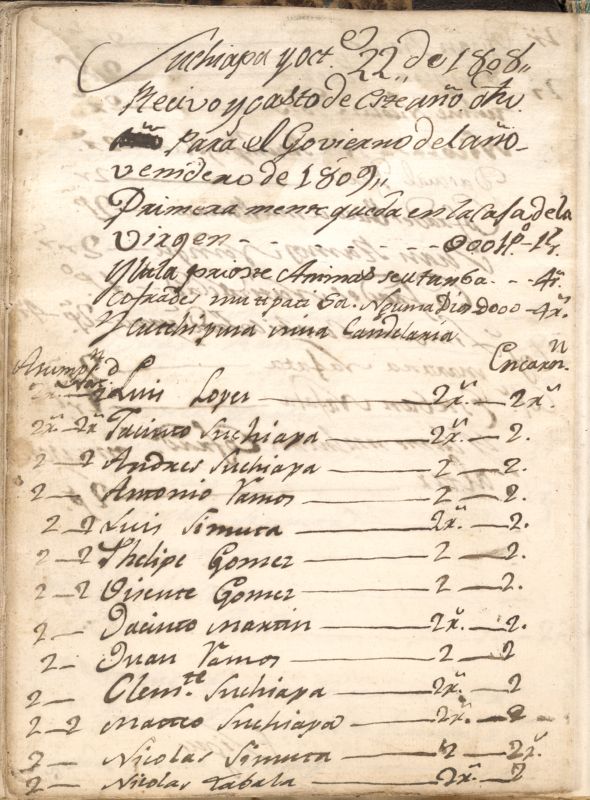 Suchiapa y oct.e 22,, de 1808,,
Recivo y gasto de Este año dho.
Para el Govierno del año
venidero de 1809,,
Primeramente queda en la Casa de la
virgen - - - - - - 0001p.o - 1r.
Animas - - 4r.
Cofrades - 4r.
Candelaria
Asump.n d Encarn.n
Nav.
2r. 2 Luis Lopes — 2r. — 2r.
2r. 2r. Jacinto Suchiapa — 2r. — 2.
2 — 2 Andres Suchiapa — 2 — 2.
2 — Antonio Ramos — 2 — 2.
2 — 2 Luis Simuta — 2r. — 2.
2 — 2 Phelipe Gomez — 2 — 2.
2 — 2 Visente Gomez — 2 — 2.
2 — Jacinto Martin — 2r. — 2.
2 — Juan Ramos — 2 — 2
2 — Clem.te Suchiapa — 2r. — 2
2 — 2 Matteo Suchiapa — 2r. — 2
2 — Nicolas Simuta — 2 — 2r.
2 — Nicolas Tabala — 2r. — 2